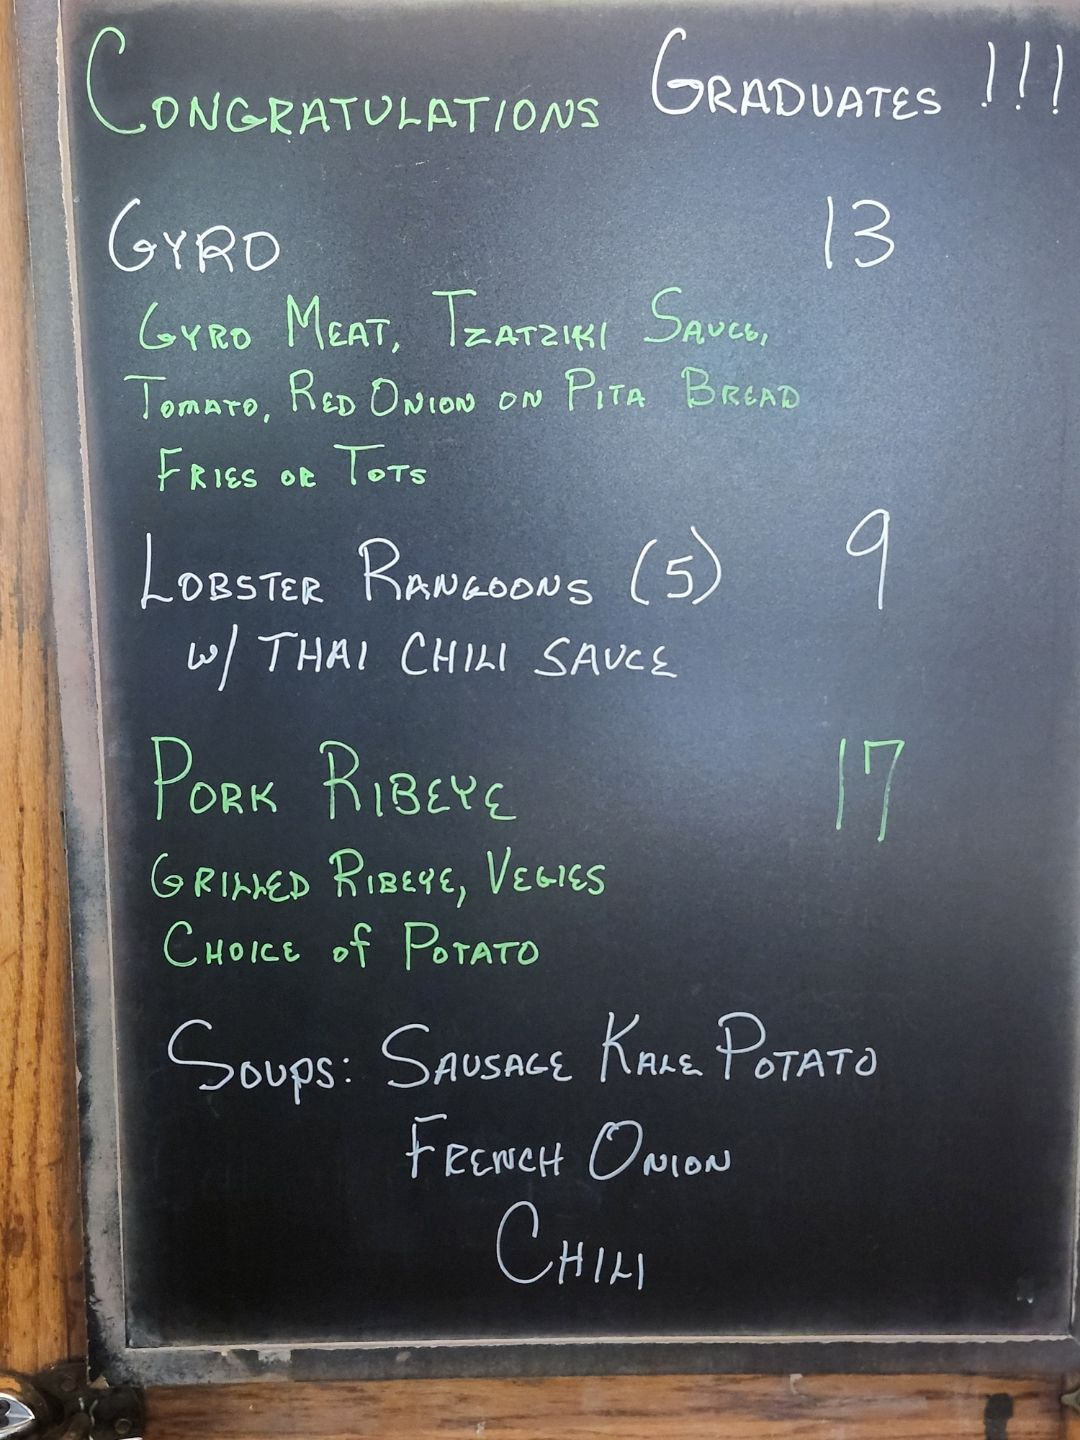 CONGRATULATIONS GRADUATES !!!
GYRO 13
GYRO MEAT, TZATZIKI SAUCE,
TOMATO, RED ONION ON PITA BREAD
FRIES OR TOTS
LOBSTER RANGOONS (5) 9
W/ THAI CHILI SAUCE
PORK RIBEYE 17
GRILLED RIBEYE, VEGIES
CHOICE of POTATO
SOUPS: SAUSAGE KALE POTATO
FRENCH ONION
CHILI